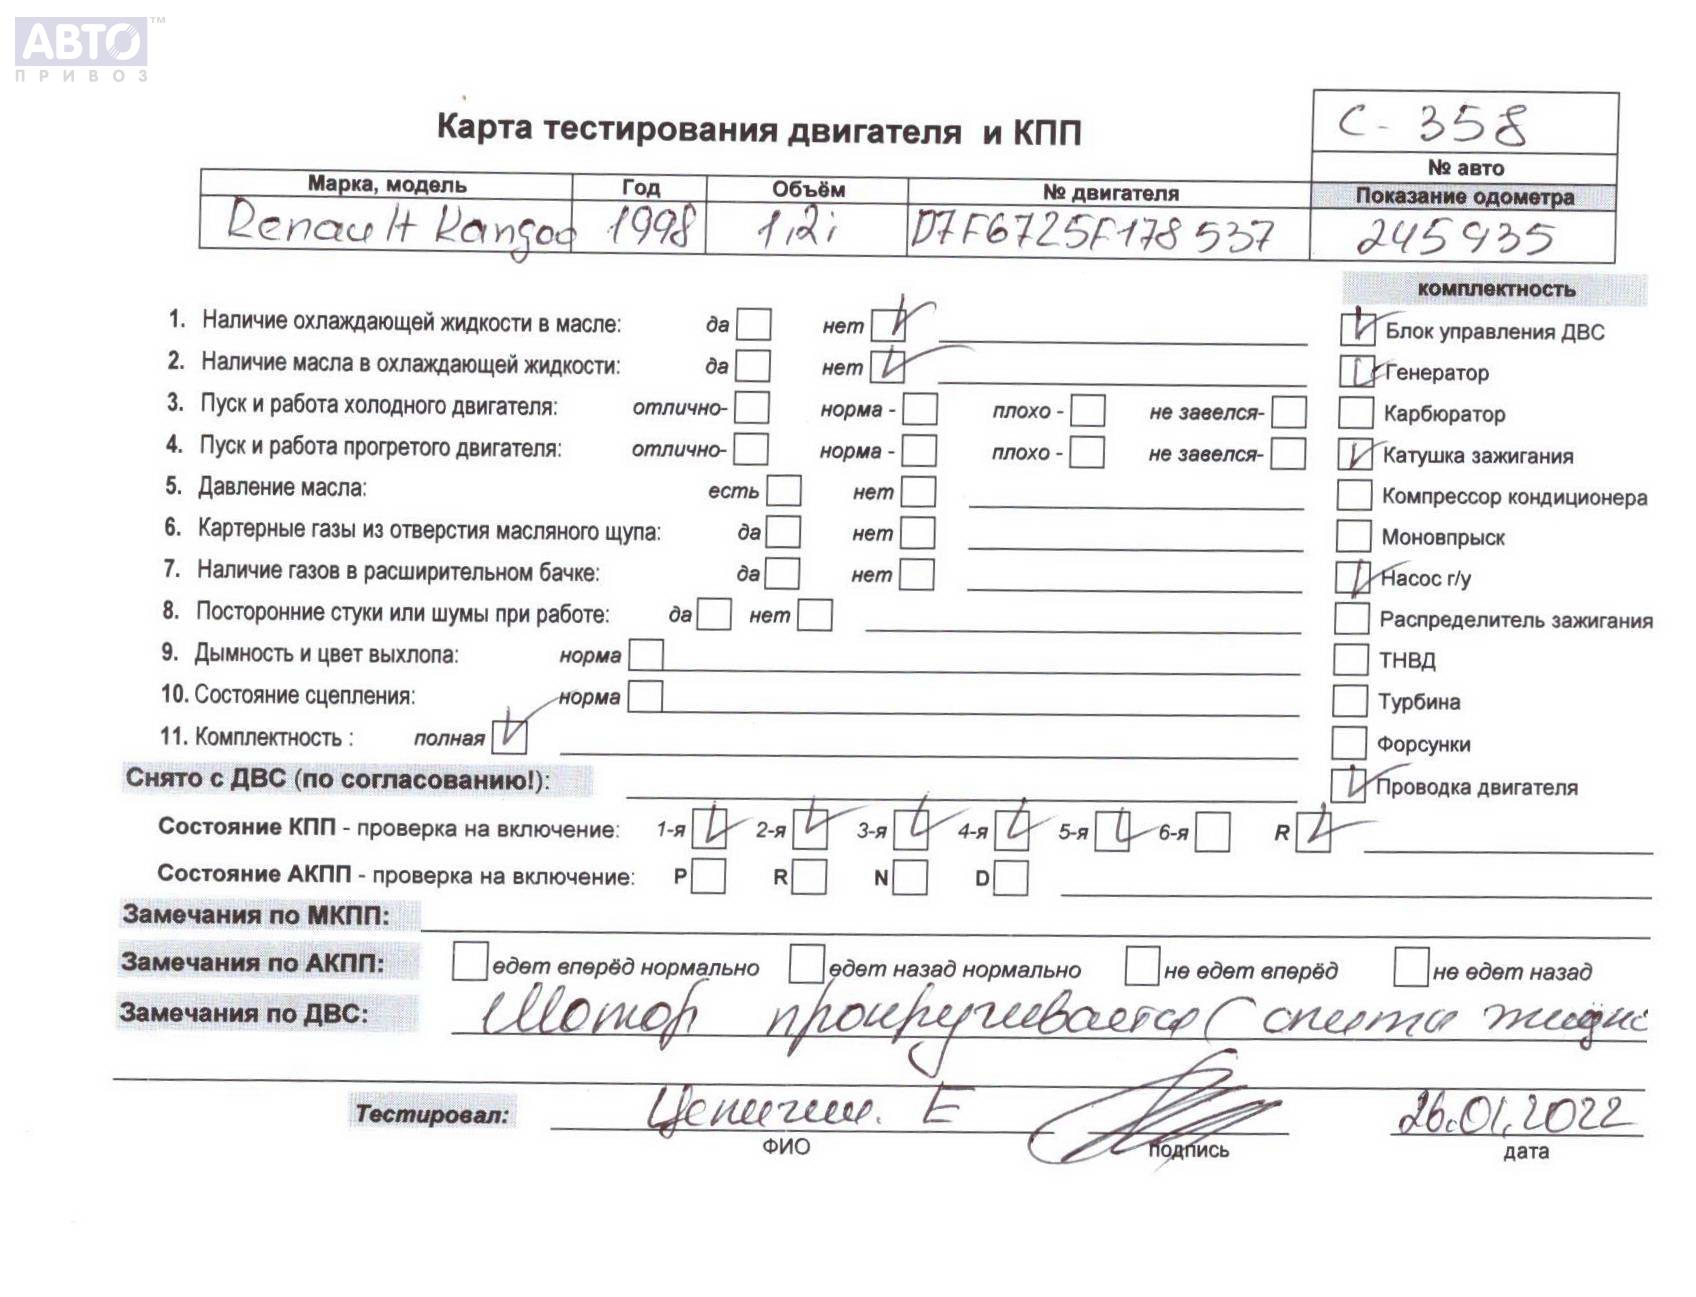 АВТО™
ПРИВОЗ
С - 358
Карта тестирования двигателя и КПП
№ авто
Марка, модель Год Объём № двигателя Показание одометра
Renault Kangoo 1998 1,2i D7F6725F178537 245935
комплектность
1. Наличие охлаждающей жидкости в масле: да нет
Блок управления ДВС
2. Наличие масла в охлаждающей жидкости: да нет
Генератор
3. Пуск и работа холодного двигателя: отлично- норма - плохо - не завелся-
Карбюратор
4. Пуск и работа прогретого двигателя: отлично- норма - плохо - не завелся-
Катушка зажигания
5. Давление масла: есть нет
Компрессор кондиционера
6. Картерные газы из отверстия масляного щупа: да нет
Моновпрыск
7. Наличие газов в расширительном бачке: да нет
Насос г/у
8. Посторонние стуки или шумы при работе: да нет
Распределитель зажигания
9. Дымность и цвет выхлопа: норма
ТНВД
10. Состояние сцепления: норма
Турбина
11. Комплектность : полная
Форсунки
Снято с ДВС (по согласованию!):
Проводка двигателя
Состояние КПП - проверка на включение: 1-я 2-я 3-я 4-я 5-я 6-я R
Состояние АКПП - проверка на включение: P R N D
Замечания по МКПП:
Замечания по АКПП: едет вперёд нормально едет назад нормально не едет вперёд не едет назад
Замечания по ДВС: Мотор прокручивается (
Тестировал: Е 26.01.2022
ФИО подпись дата